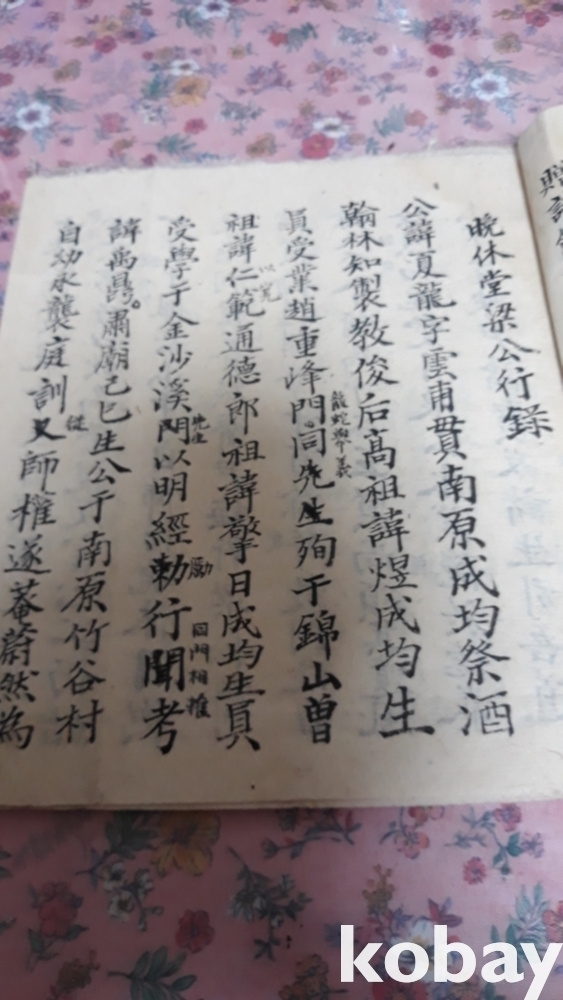 晩休堂梁公行錄
公諱夏龍字雲甫貫南原成均祭酒
翰林知製教俊后高祖諱煜成均生
員受業趙重峰門同先生殉于錦山曾
龍蛇擧義
祖諱仁範通德郎祖諱擎日成均生員
受學于金沙溪門以明經勅行聞考
先生
勵
同門相推
諱禹㬎肅廟己巳生公于南原竹谷村
自幼永襲庭訓又師權遂菴蔚然為
從
贈
kobay